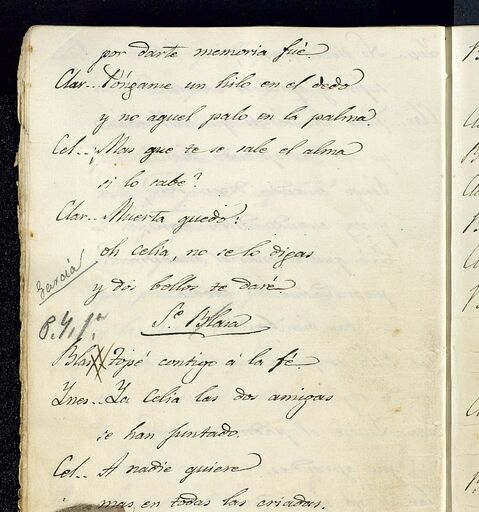 por darte memoria fué.
Clar.. Póngame un hilo en el dedo
y no aquel palo en la palma.
Cel.. ¡Mas que te se sale el alma
si lo sabe?
Clar.. Muerta quedo:
oh Celia, no se lo digas
y dos bellos te daré.
García
Se. Blasa
P.4,1.a
Blas. Topé contigo á la fé.
Ynes.. Ya Celia las dos amigas
se han juntado.
Cel.. A nadie quiere
mas, en todas las criadas.